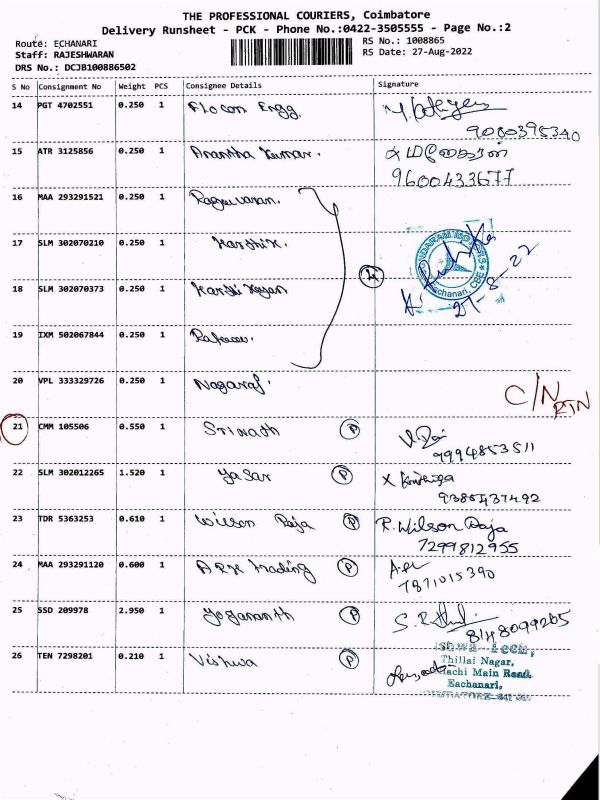 THE PROFESSIONAL COURIERS, Coimbatore
Delivery Runsheet - PCK - Phone No.:0422-3505555 - Page No.:2
Route: ECHANARI
RS No.: 1008865
Staff: RAJESHWARAN
RS Date: 27-Aug-2022
DRS No.: DCJB100886502
S No Consignment No Weight PCS Consignee Details Signature
14 PGT 4702551 0.250 1 Flocon Engg.
9080395340
15 ATR 3125856 0.250 1 Anantha Kumar.
9600433677
16 MAA 293291521 0.250 1 Raguvaran.
17 SLM 302070210 0.250 1 Karthik.
18 SLM 302070373 0.250 1 Karthi Keyan
Eachanari, CBE
27-8-22
19 IXM 502067844 0.250 1
20 VPL 333329726 0.250 1 Nagaraj.
C/N
RTN
21 CMM 105506 0.550 1 Srinath P
9994853511
22 SLM 302012265 1.520 1 Yasar P
9385437492
23 TDR 5363253 0.610 1 Wilson Raja P R. Wilson Raja
7299812955
24 MAA 293291120 0.600 1 Trading P
7871015390
25 SSD 209978 2.950 1 Yogananth P
8148099265
26 TEN 7298201 0.210 1 Vishwa P
Thillai Nagar,
Main Road,
Eachanari,